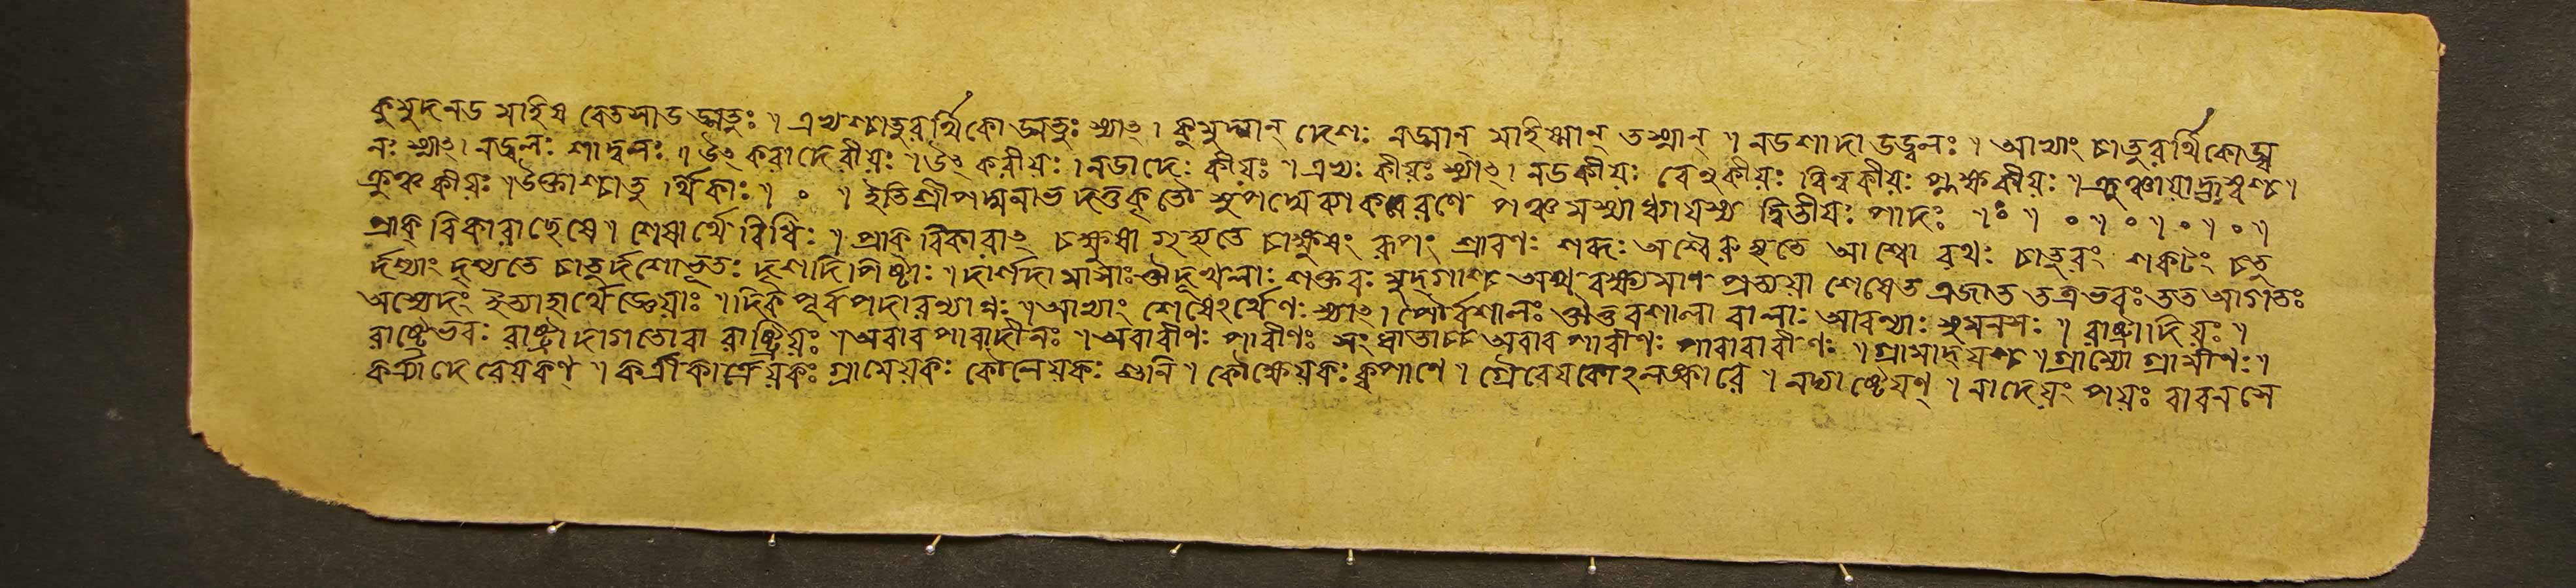 কুমুদনড মাহিষ বেতসাড্ড্মতুঃ । এখশ্চাতুরর্থিকো ড্মতুঃ স্যাৎ । কুমুদ্বান্ দেশঃ নড্বান মাহিষ্মান্ তস্মান্ । নডশাদাড্ড্বলঃ । আভ্যাং চাতুরর্থিকোড্ব
লঃ স্যাৎ । নড্বলঃ শাদ্বলঃ । উৎকরাদেরীয়ঃ । উৎকরীয়ঃ । নডাদেঃ কীয়ঃ । এখঃ কীয়ঃ স্যাৎ । নডকীয়ঃ বেণুকীয়ঃ বিল্বকীয়ঃ প্লক্ষকীয়ঃ । ক্রুঞ্চায়া হ্রস্বশ্চ ।
ক্রুঞ্চকীয়ঃ । উক্তাশ্চাতুর্থিকাঃ । ॰ । ইতি শ্রীপদ্মনাভদত্তকৃতৌ সুপদ্মব্যাকরণে পঞ্চমস্যাধ্যায়স্য দ্বিতীয়ঃ পাদঃ । ॰ । ॰ । ॰ । ॰ । ॰ ।
প্রাক্ বিকারাচ্ছেষে । শেষার্থে বিধিঃ । প্রাক্ বিকারাৎ চক্ষুষা গৃহ্যতে চাক্ষুষং রূপং শ্রাবণঃ শব্দঃ অশ্বৈরুহ্যতে আশ্বো রথঃ চাতুরং শকটং চতু
র্দশ্যাং দৃশ্যতে চাতুর্দশো ভূতঃ দৃশদি পিষ্টাঃ । দার্শদা মাষাঃ ঔদূখলাঃ শক্তবঃ মুদ্গাশ্চ অথ বক্ষ্যমাণ প্রত্যয়া শেষেত এজাত তত্রভবঃ তত আগতঃ
অস্যেদং ইত্যাদ্যর্থে জ্ঞেয়াঃ । দিক্ পূর্বপদারণ্যান্নঃ । আভ্যাং শেষেঽর্থে ণঃ স্যাৎ । পৌর্বশালঃ ঔত্তরশালা বালাঃ আরণ্যাঃ সুমনসঃ । রাষ্ট্রাদিয়ঃ ।
রাষ্ট্রেভবঃ রাষ্ট্রাদাগতোবা রাষ্ট্রিয়ঃ । অবারপারাদীনঃ । অবারীণঃ পারীণঃ সংঘাতাচ্চ অবারপারীণঃ পারাবারীণঃ । গ্রামাদ্যশ্চ । গ্রাম্যো গ্রামীণঃ ।
কত্র্যাদেরেয়কণ্ । কত্রীকা কাত্রেয়কঃ গ্রামেয়কঃ কৌলেয়কঃ শুনি । কৌক্ষেয়কঃ কৃপাণে । গ্রৈবেয়কোঽলঙ্কারে । নদ্যাদের্ষ্ণেয়ণ্ । নাদেয়ং পয়ঃ বাবনসে